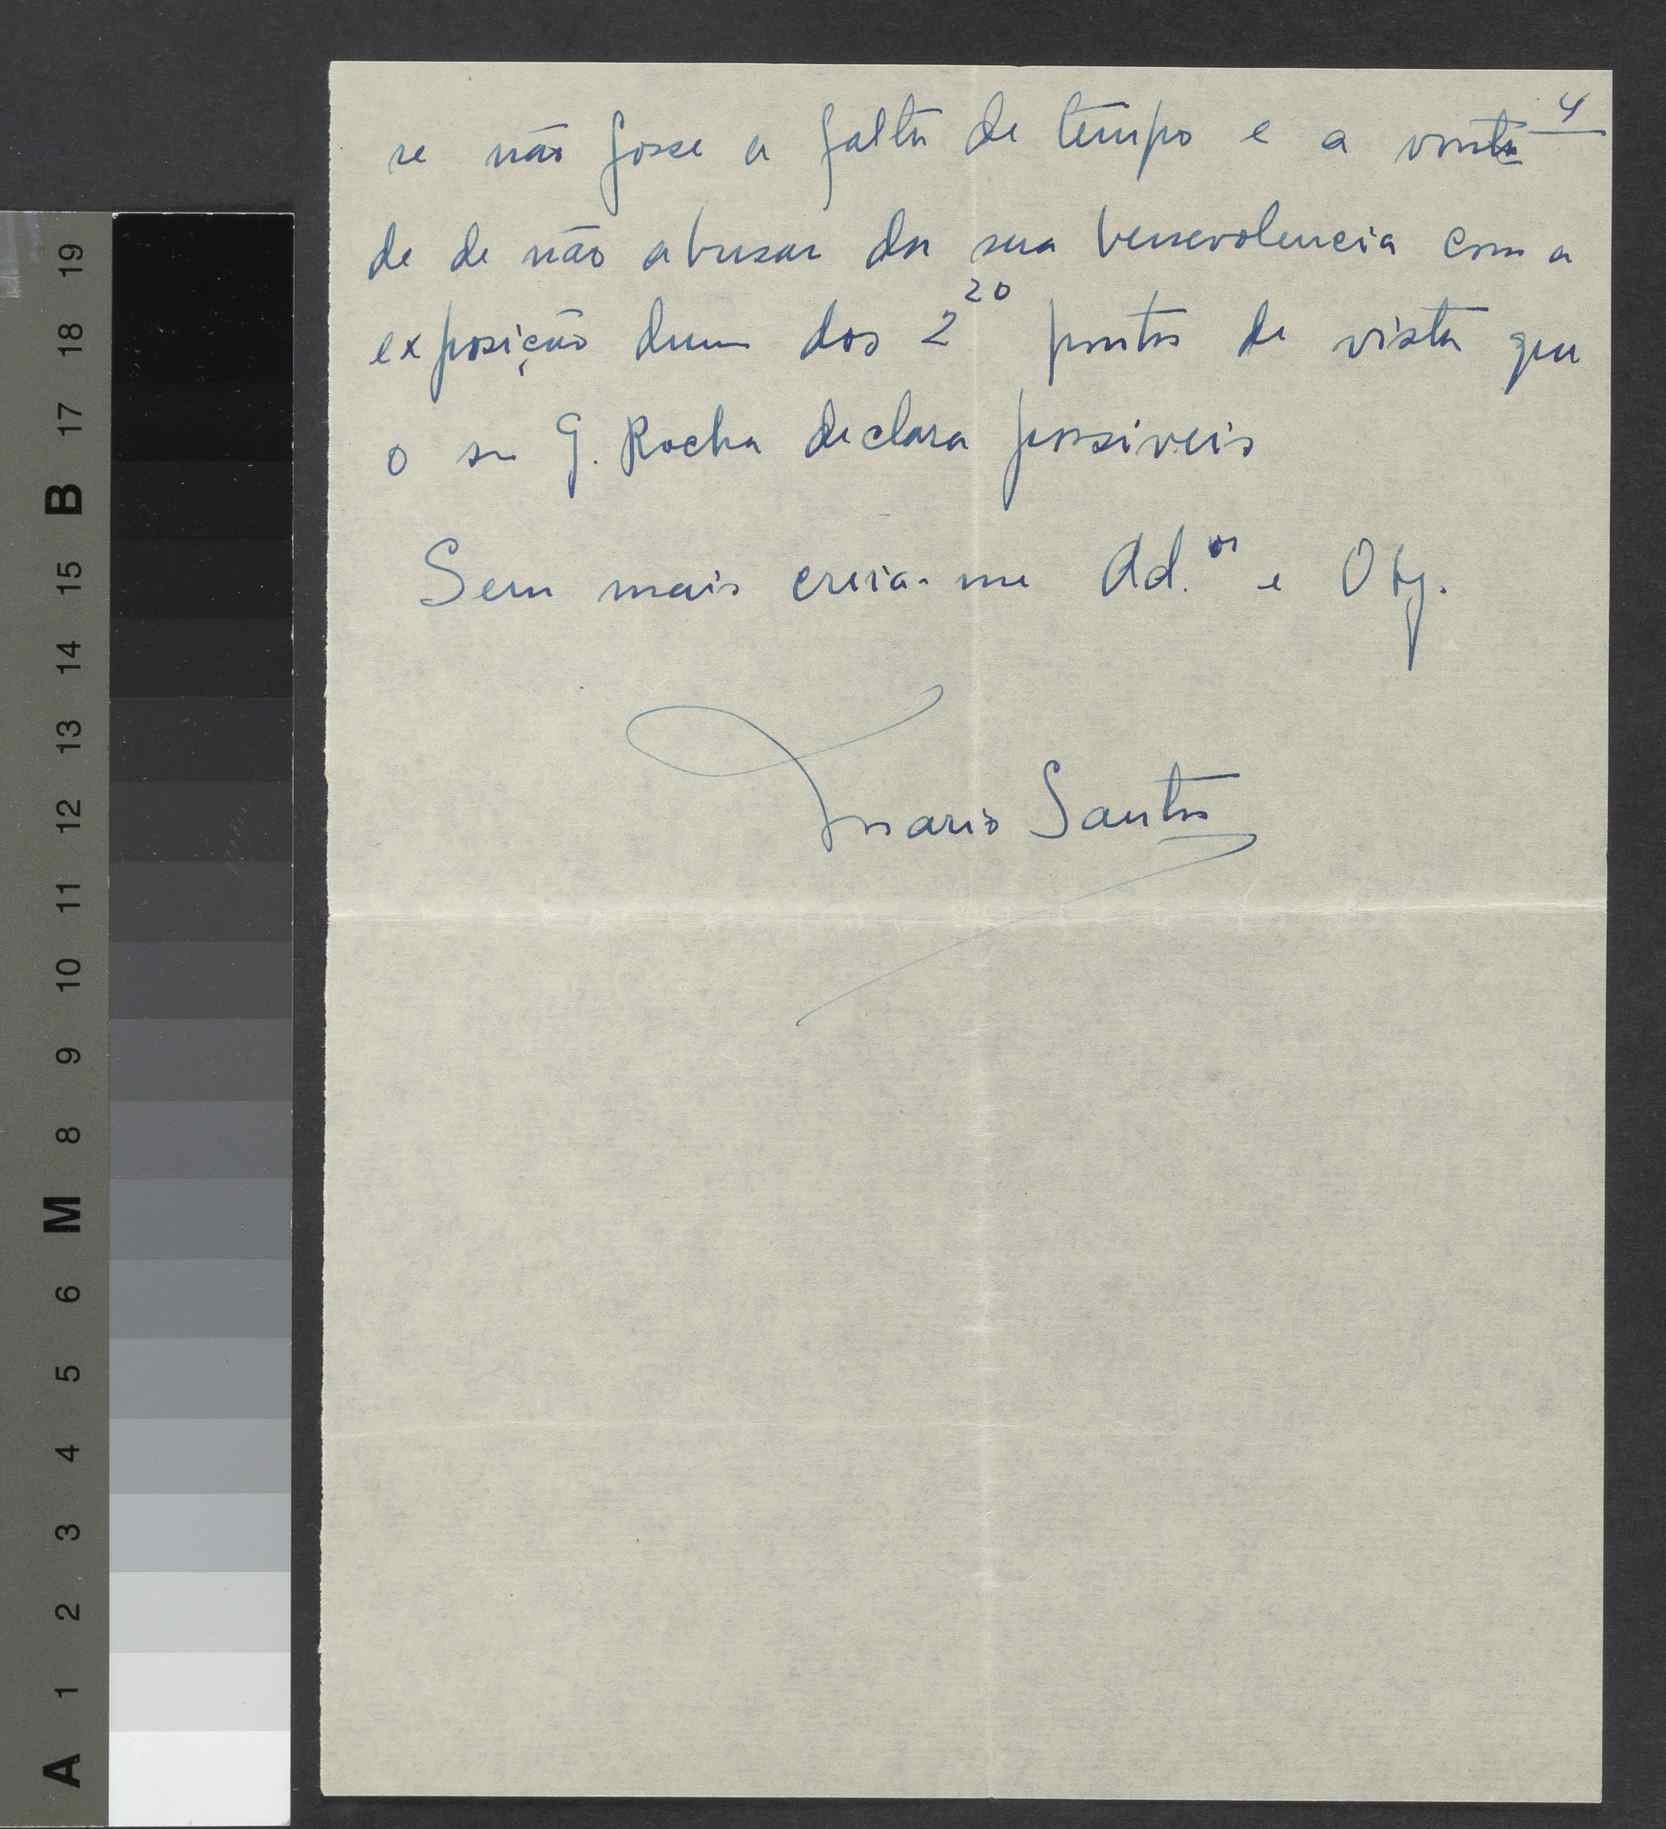 4
se não fosse a falta de tempo e a vonta
de de não abusar da sua benevolencia com a
exposição dum dos 2²⁰ pontos de vista que
o sr G. Rocha declara possiveis
Sem mais creia-me Ad.ᵒʳ e Obg.
Mario Santos
A 1 2 3 4 5 6 M 8 9 10 11 12 13 14 15 B 17 18 19